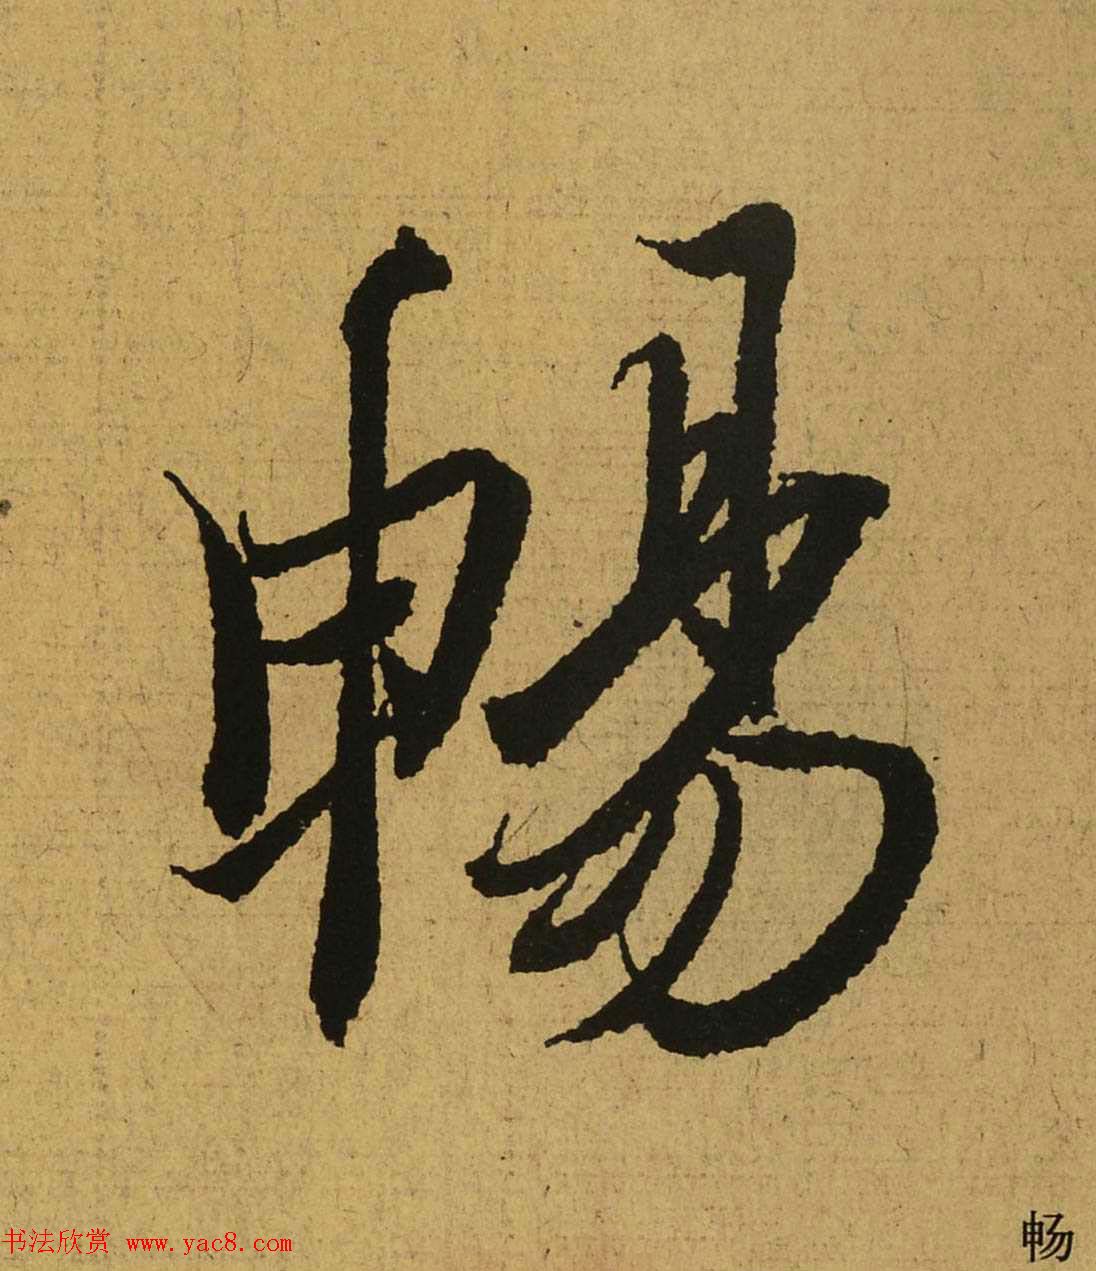 暢
畅
书法欣赏 www.yac8.com